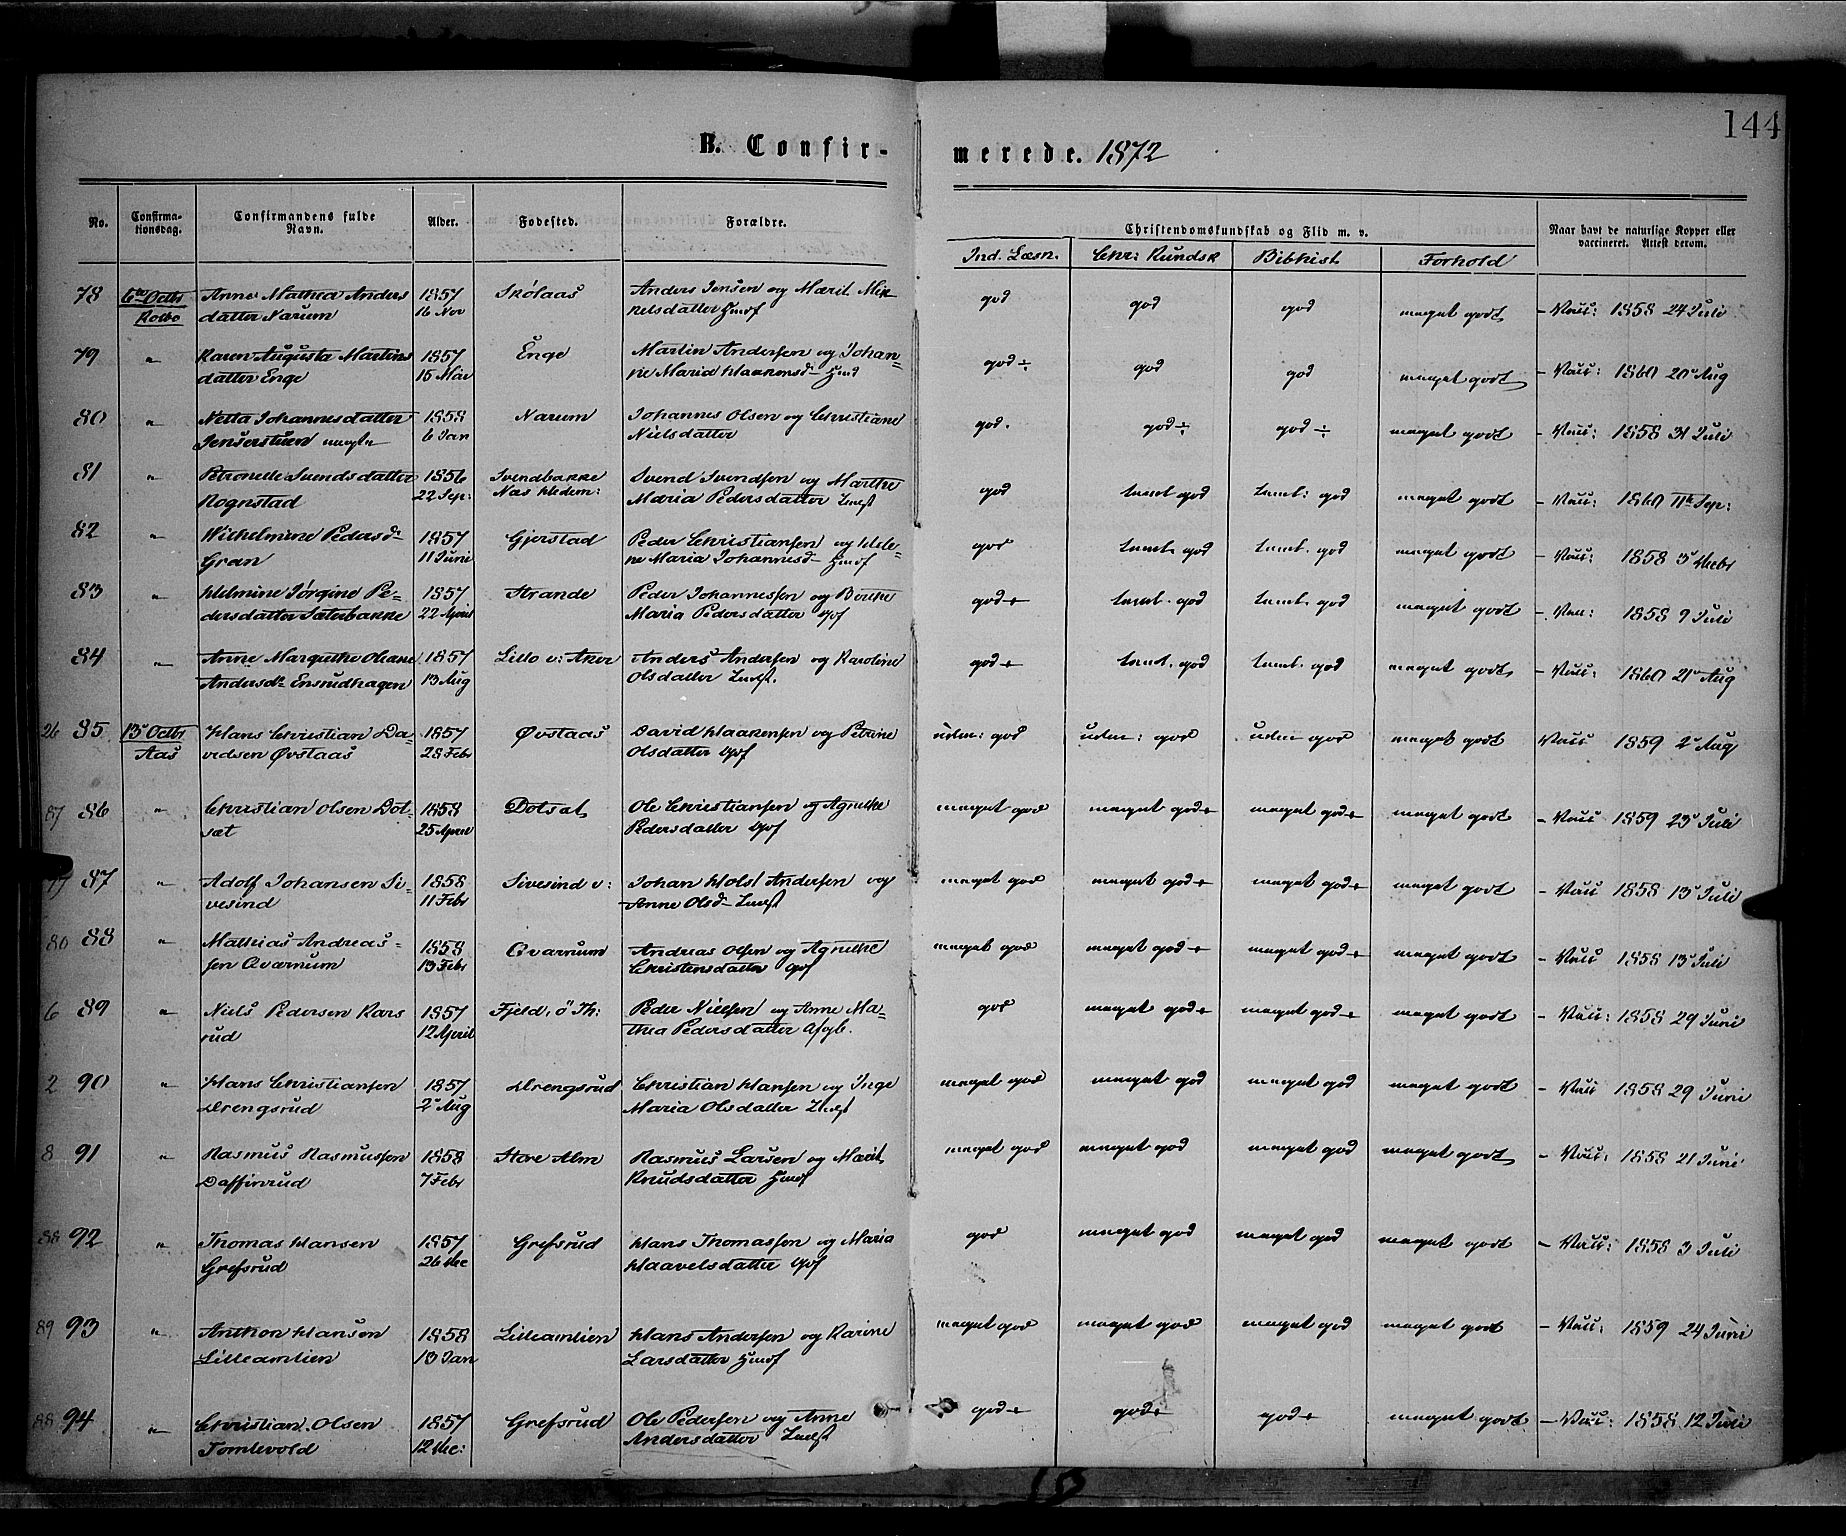 144
B. Confir- merede. 1872
No. Confirma- Confirmandens fulde Alder. Fødested. Forældre. Christendomskundskab og Flid m. v. Naar havt de naturlige Kopper eller
tionsdag. Navn. vaccineret. Attest derom.
Ind. Læsn. Chr: Kundsk Bibhist Forhold
78 6te Octbr Anne Mathea Anders 1857 Skölaas Anders Jensen og Marit Mik god god god meget godt - Vacc: 1858 24 Juli
Kolbo datter Narum 16 Nov kelsdatter Husf
79 " Karen Augusta Martins 1857 Enge Martin Andersen og Johan- god ÷ god god meget godt - Vacc: 1860 20 Aug
datter Enge 15 Mar ne Maria Haakensd- Husf
80 " Netta Johannesdatter 1858 Narum Johannes Olsen og Christiane god. god ÷ god ÷ meget godt - Vacc: 1858 31 Juli
Jenserstuen 6 Jan Nielsdatter
81 " Petronelle Svendsdatter 1856 Svendbakke Svend Svendsen og Marthe god teml god teml: god meget godt - Vacc: 1860 11te Sep:
Rognstad 22 Sep: Nas Hedem: Maria Pedersdatter Indst
82 " Wilhelmine Pedersd- 1857 Gjerstad Peder Christiansen og Hele- god teml. god teml. god meget godt - Vacc: 1858 3
Gran 11 Juni ne Maria Johannesd- Husf
83 " Helmine Jørgine Pe- 1857 Strande Peder Johannessen og Berthe god + teml. god teml. god meget godt - Vacc: 1858 9 Juli
dersdatter Sæterbakke 22 April Maria Pedersdatter Gbf
84 " Anne Margrethe Oleane 1857 Lillo v: Aker Anders Andersen og Karoline god + teml. god teml. god meget godt - Vacc: 1860 21 Aug
Andersd- Ensrudhagen 13 Aug Olsdatter Indst.
26 85 13 Octbr Hans Christian Da- 1857 Øvstaas David Haakensen og Petrine udm: god udm: god udm god meget godt Vacc 1859 2 Aug
Aas vidsen Øvstaas 28 Febr Olsdatter Gbf
87 86 " Christian Olsen Dot- 1858 Dotsæt Ole Christiansen og Agnethe meget god meget god + meget god + meget godt - Vacc 1859 23 Juli
sæt 25 April Pedersdatter Gbf
87 " Adolf Johansen Si- 1858 Sivesind v: Johan Holst Andersen og meget god meget god + meget god + meget godt - Vacc 1858 13 Juli
vesind 11 Febr Anne Olsd- Indst
80 88 " Mathias Andreas- 1858 Qvarnum Andreas Olsen og Agnethe meget god meget god + meget god + meget godt - Vacc 1858 13 Juli
sen Qværnum 13 Febr Christensdatter Gbf
6 89 " Niels Pedersen Kars 1857 Fjeld, ö Th: Peder Nielsen og Anne Ma- god meget god + meget god + meget godt - Vacc: 1858 29 Juni
rud 12 April thea Pedersdatter Afgb.
2 90 " Hans Christiansen 1857 Drengsrud Christian Hansen og Inge meget god meget god meget god meget godt - Vacc 1858 29 Juni
Drengsrud 2 Aug Maria Olsdatter Indst
8 91 " Rasmus Rasmussen 1858 Store Alm Rasmus Larsen og Marit meget god meget god meget god meget godt - Vacc: 1858 21 Juni
Daffinrud 7 Febr Knudsdatter Husf
88 92 " Thomas Hansen 1857 Grefsrud Hans Thomassen og Maria god meget god meget god meget godt - Vacc: 1858 3 Juli
Grefsrud 26 Dec Haavelsdatter Gbf
89 93 " Anthon Hansen 1858 Lilleamlien Hans Andersen og Karine meget god meget god meget god meget godt - Vacc: 1859 24 Juni
Lilleamlien 13 Jan Larsdatter Husf
88 94 " Christian Olsen 1857 Grefsrud Ole Pedersen og Anne god + god + god + meget godt - Vacc: 1858 12 Juli
Tomlevold 12 Dec: Andersdatter Indst